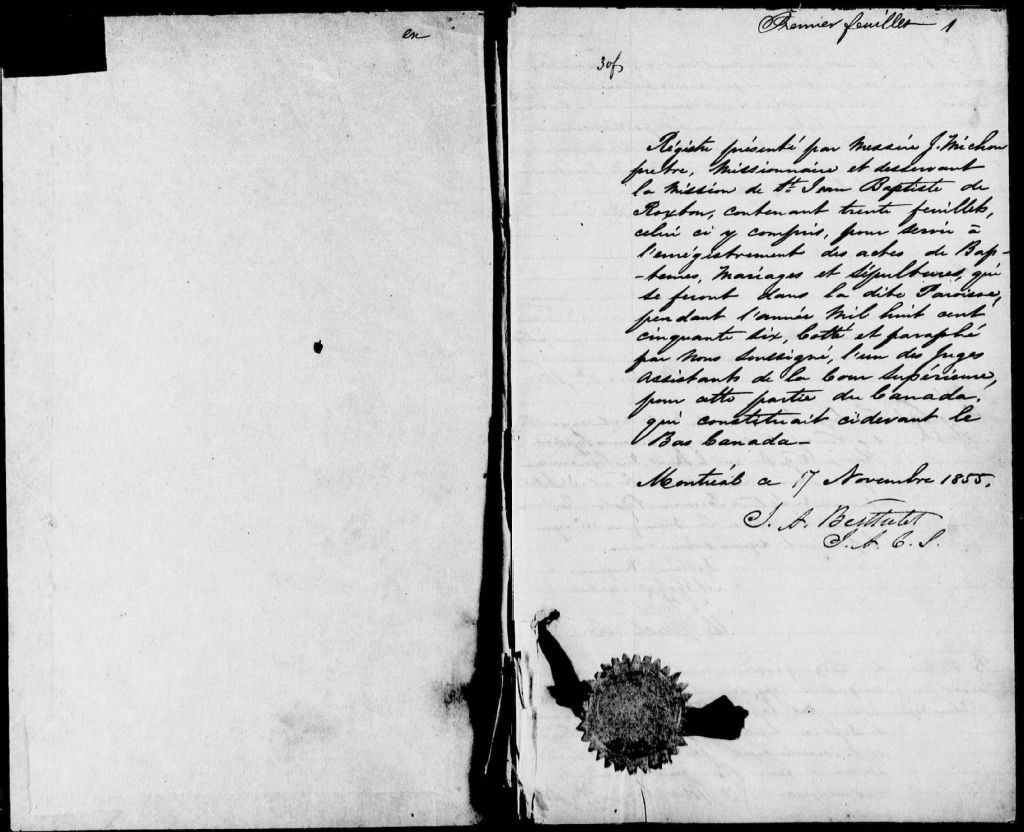 en
Premier feuillet 1
30f
Régistre présenté par Messire J. Michon
prêtre, Missionnaire et desservant
la Mission de St. Jean Baptiste de
Roxton, contenant trente feuillets,
celui ci y compris, pour servir à
l'enrégistrement des actes de Bap-
-temes, Mariages et Sépultures, qui
se feront dans la dite Paroisse,
pendant l'année Mil huit cent
cinquante six, Cotté et paraphé
par Nous Soussigné, l'un des Juges
Assistants de la Cour Supérieure,
pour cette partie du Canada,
qui constituait cidevant le
Bas Canada—
Montréal ce 17 Novembre 1855.
J. A. Berthelot
J. A. C. S.